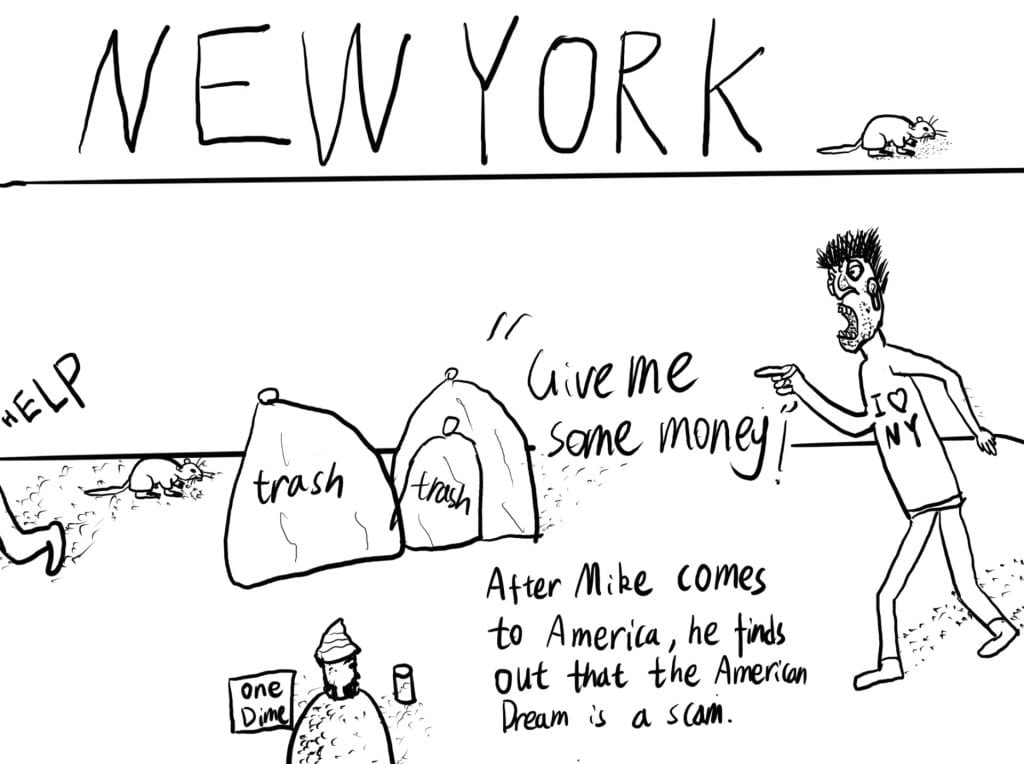 NEW YORK
HELP
"Give me
some money!"
I ♡
NY
trash
trash
After Mike comes
to America, he finds
out that the American
Dream is a scam.
one
Dime